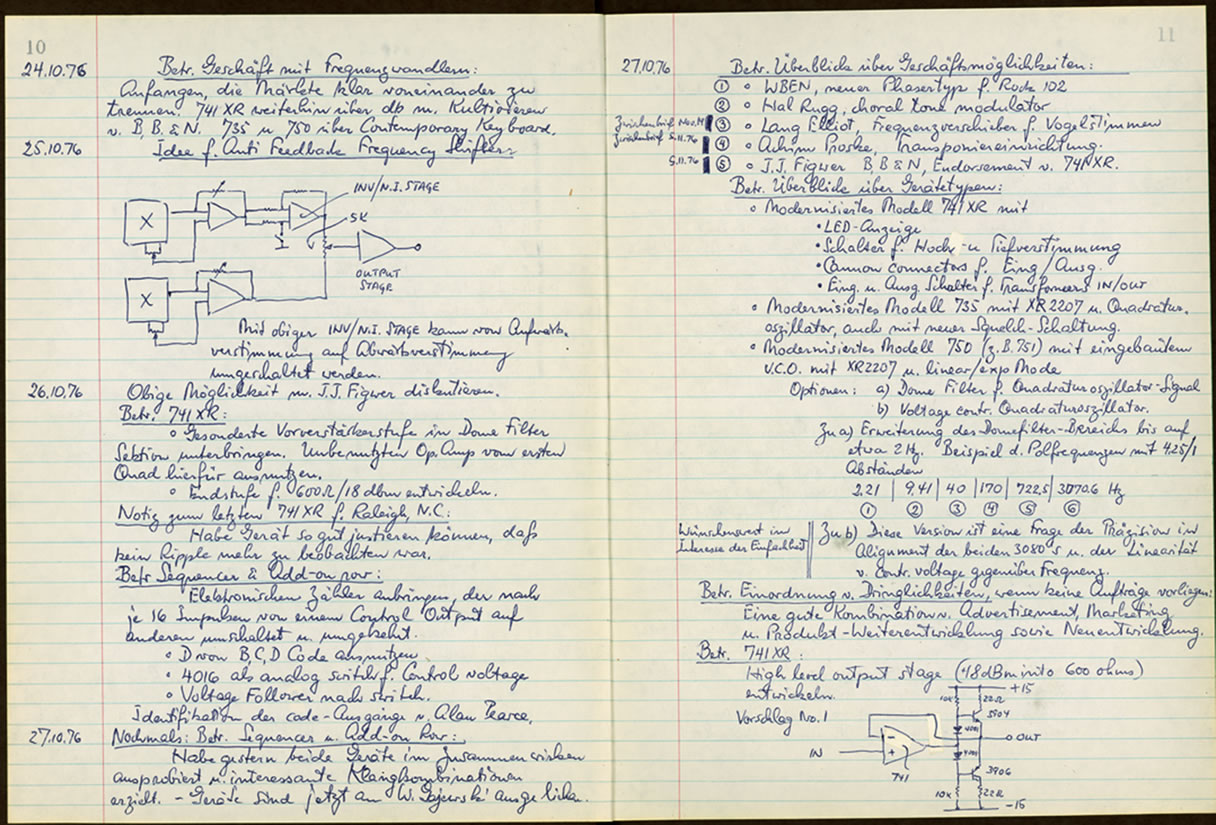 10
24.10.76 Betr. Geschäft mit Frequenzwandlern:
Anfangen, die Märkte klar voneinander zu
trennen. 741 XR weiterhin über db m. Kultivieren
v. B.B.&N. 735 u 750 über Contemporary Keyboard.
25.10.76 Idee f. Anti Feedback Frequency Shifter:
INV/N.I. STAGE
X
5K
OUTPUT
STAGE
X
Mit obiger INV/N.I. STAGE kann von Aufwärts-
verstimmung auf Abwärtsverstimmung
umgeschaltet werden.
26.10.76 Obige Möglichkeit m. J.J. Figwer diskutieren.
Betr. 741 XR:
• Gesonderte Vorverstärkerstufe in Dome Filter
Sektion unterbringen. Unbenutzten Op. Amp vom ersten
Quad hierfür ausnutzen.
• Endstufe f. 600Ω/18 dbm entwickeln.
Notiz zum letzten 741 XR f. Raleigh, N.C.:
Habe Gerät so gut justieren können, daß
kein Ripple mehr zu beobachten war.
Betr. Sequencer & Add-on row:
Elektronischen Zähler anbringen, der nach
je 16 Impulsen von einem Control Output auf
anderen umschaltet u. umgekehrt.
• D von B,C,D Code ausnutzen
• 4016 als analog switch f. Control voltage
• Voltage Follower nach switch.
Identifikation der code-Ausgänge v. Alan Pearce.
27.10.76 Nochmals: Betr. Sequencer u. Add-on Row:
Habe gestern beide Geräte im Zusammenwirken
ausprobiert u. interessante Klangkombinationen
erzielt. – Geräte sind jetzt an W. Gajewski ausgeliehen.
11
27.10.76 Betr. Überblick über Geschäftsmöglichkeiten:
① • WBEN, neuer Phasertyp f. Rock 102
② • Hal Rugg, choral tone modulator
Zwischenbrief Nov. ③ • Lang Elliot, Frequenzverschieber f. Vogelstimmen
Zwischenbrief 5.11.76 ④ • Achim Proske, Transponiereinrichtung.
5.11.76 ⑤ • J.J. Figwer B B & N, Endorsement v. 741 XR.
Betr. Überblick über Gerätetypen:
• Modernisiertes Modell 741 XR mit
• LED-Anzeige
• Schalter f. Hoch- u Tiefverstimmung
• Cannon connectors f. Eing/Ausg.
• Eing. u. Ausg. Schalter f. Transformers IN/OUT
• Modernisiertes Modell 735 mit XR2207 u. Quadratur.
oszillator, auch mit neuer Squelch-Schaltung.
• Modernisiertes Modell 750 (z.B. 751) mit eingebautem
V.C.O. mit XR2207 u. linear/exp Mode
Optionen: a) Dome Filter f. Quadraturoszillator-Signal
b) Voltage contr. Quadraturoszillator.
Zu a) Erweiterung des Domefilter-Bereichs bis auf
etwa 2 Hz. Beispiel d. Polfrequenzen mit 4.25/1
Abständen
2.21 | 9.41 | 40 | 170 | 722.5 | 3070.6 Hz
① ② ③ ④ ⑤ ⑥
Wünschenswert im
Interesse der Einfachheit
Zu b) Diese Version ist eine Frage der Präzision im
Alignment der beiden 3080's u. der Linearität
v. contr. voltage gegenüber Frequenz.
Betr. Einordnung v. Dringlichkeiten, wenn keine Aufträge vorliegen:
Eine gute Kombination v. Advertisement, Marketing
u. Produkt-Weiterentwicklung sowie Neuentwicklung.
Betr. 741 XR:
High level output stage (+18 dBm into 600 ohms)
entwickeln.
Vorschlag No. 1
+15
10K 22Ω
3904
IN
- +
741
OUT
3906
10K 22Ω
-15